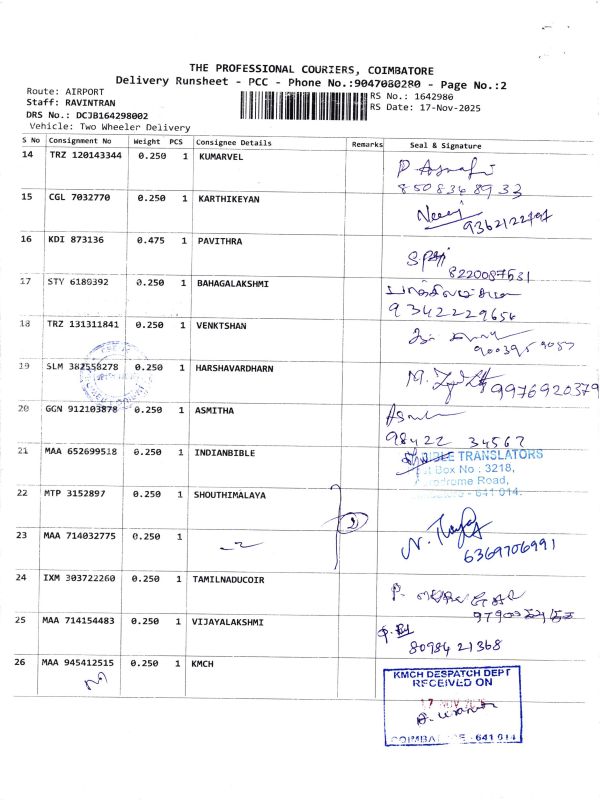 THE PROFESSIONAL COURIERS, COIMBATORE
Delivery Runsheet - PCC - Phone No.:9047080280 - Page No.:2
Route: AIRPORT
RS No.: 1642980
Staff: RAVINTRAN
RS Date: 17-Nov-2025
DRS No.: DCJB164298002
Vehicle: Two Wheeler Delivery
S No Consignment No Weight PCS Consignee Details Remarks Seal & Signature
14 TRZ 120143344 0.250 1 KUMARVEL
8508368933
15 CGL 7032770 0.250 1 KARTHIKEYAN
16 KDI 873136 0.475 1 PAVITHRA
8220087531
17 STY 6180392 0.250 1 BAHAGALAKSHMI
9342229656
18 TRZ 131311841 0.250 1 VENKTSHAN
19 SLM 382558278 0.250 1 HARSHAVARDHARN
9976920379
20 GGN 912103878 0.250 1 ASMITHA
98422 34567
21 MAA 652699518 0.250 1 INDIANBIBLE
BIBLE TRANSLATORS
Box No : 3218,
Road,
- 641 014.
22 MTP 3152897 0.250 1 SHOUTHIMALAYA
2
23 MAA 714032775 0.250 1
6369706991
24 IXM 303722260 0.250 1 TAMILNADUCOIR
25 MAA 714154483 0.250 1 VIJAYALAKSHMI
80984 21368
26 MAA 945412515 0.250 1 KMCH
KMCH DESPATCH DEPT
RECEIVED ON
17 NOV
- 641 014